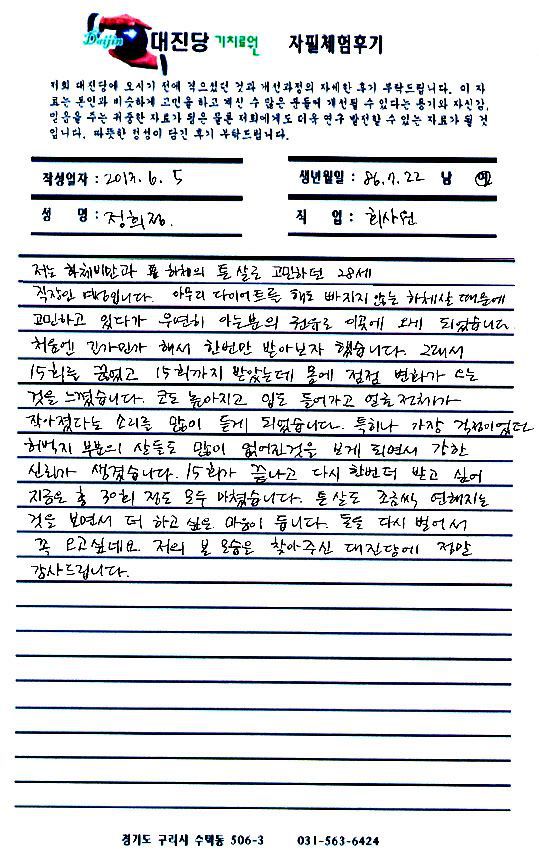 Daijin 대진당 기치료원 자필체험후기
저희 대진당에 오시기 전에 겪으셨던 것과 개선과정의 자세한 후기 부탁드립니다. 이 자
료는 본인과 비슷하게 고민을 하고 계신 수 많은 분들께 개선될 수 있다는 용기와 자신감,
믿음을 주는 귀중한 자료가 됨은 물론 저희에게도 더욱 연구 발전할 수 있는 자료가 될 것
입니다. 따뜻한 정성이 담긴 후기 부탁드립니다.
작성일자 : 2013. 6. 5 생년월일 : 86. 7. 22 남 여
성 명 : 정희정. 직 업 : 회사원
저는 하체비만과 하체의 튼살로 고민하던 28세
직장인 여성입니다. 아무리 다이어트를 해도 빠지지 않는 하체살 때문에
고민하고 있다가 우연히 아는분의 권유로 이곳에 오게 되었습니다.
처음엔 긴가민가 해서 한번만 받아보자 했습니다. 그래서
15회를 끊었고 15회까지 받았는데 몸에 점점 변화가 오는
것을 느꼈습니다. 코도 높아지고 입도 들어가고 얼굴전체가
작아졌다는 소리를 많이 듣게 되었습니다. 특히나 가장 걱정이였던
허벅지 부분의 살들도 많이 없어진것을 보게 되면서 강한
신뢰가 생겼습니다. 15회가 끝나고 다시 한번더 받고 싶어
지금은 총 30회 정도 모두 마쳤습니다. 튼살도 조금씩 연해지는
것을 보면서 더 하고 싶은 마음이 듭니다. 돈을 다시 벌어서
꼭 오고싶네요. 저의 본 모습을 찾아주신 대진당에 정말
감사드립니다.
경기도 구리시 수택동 506-3 031-563-6424